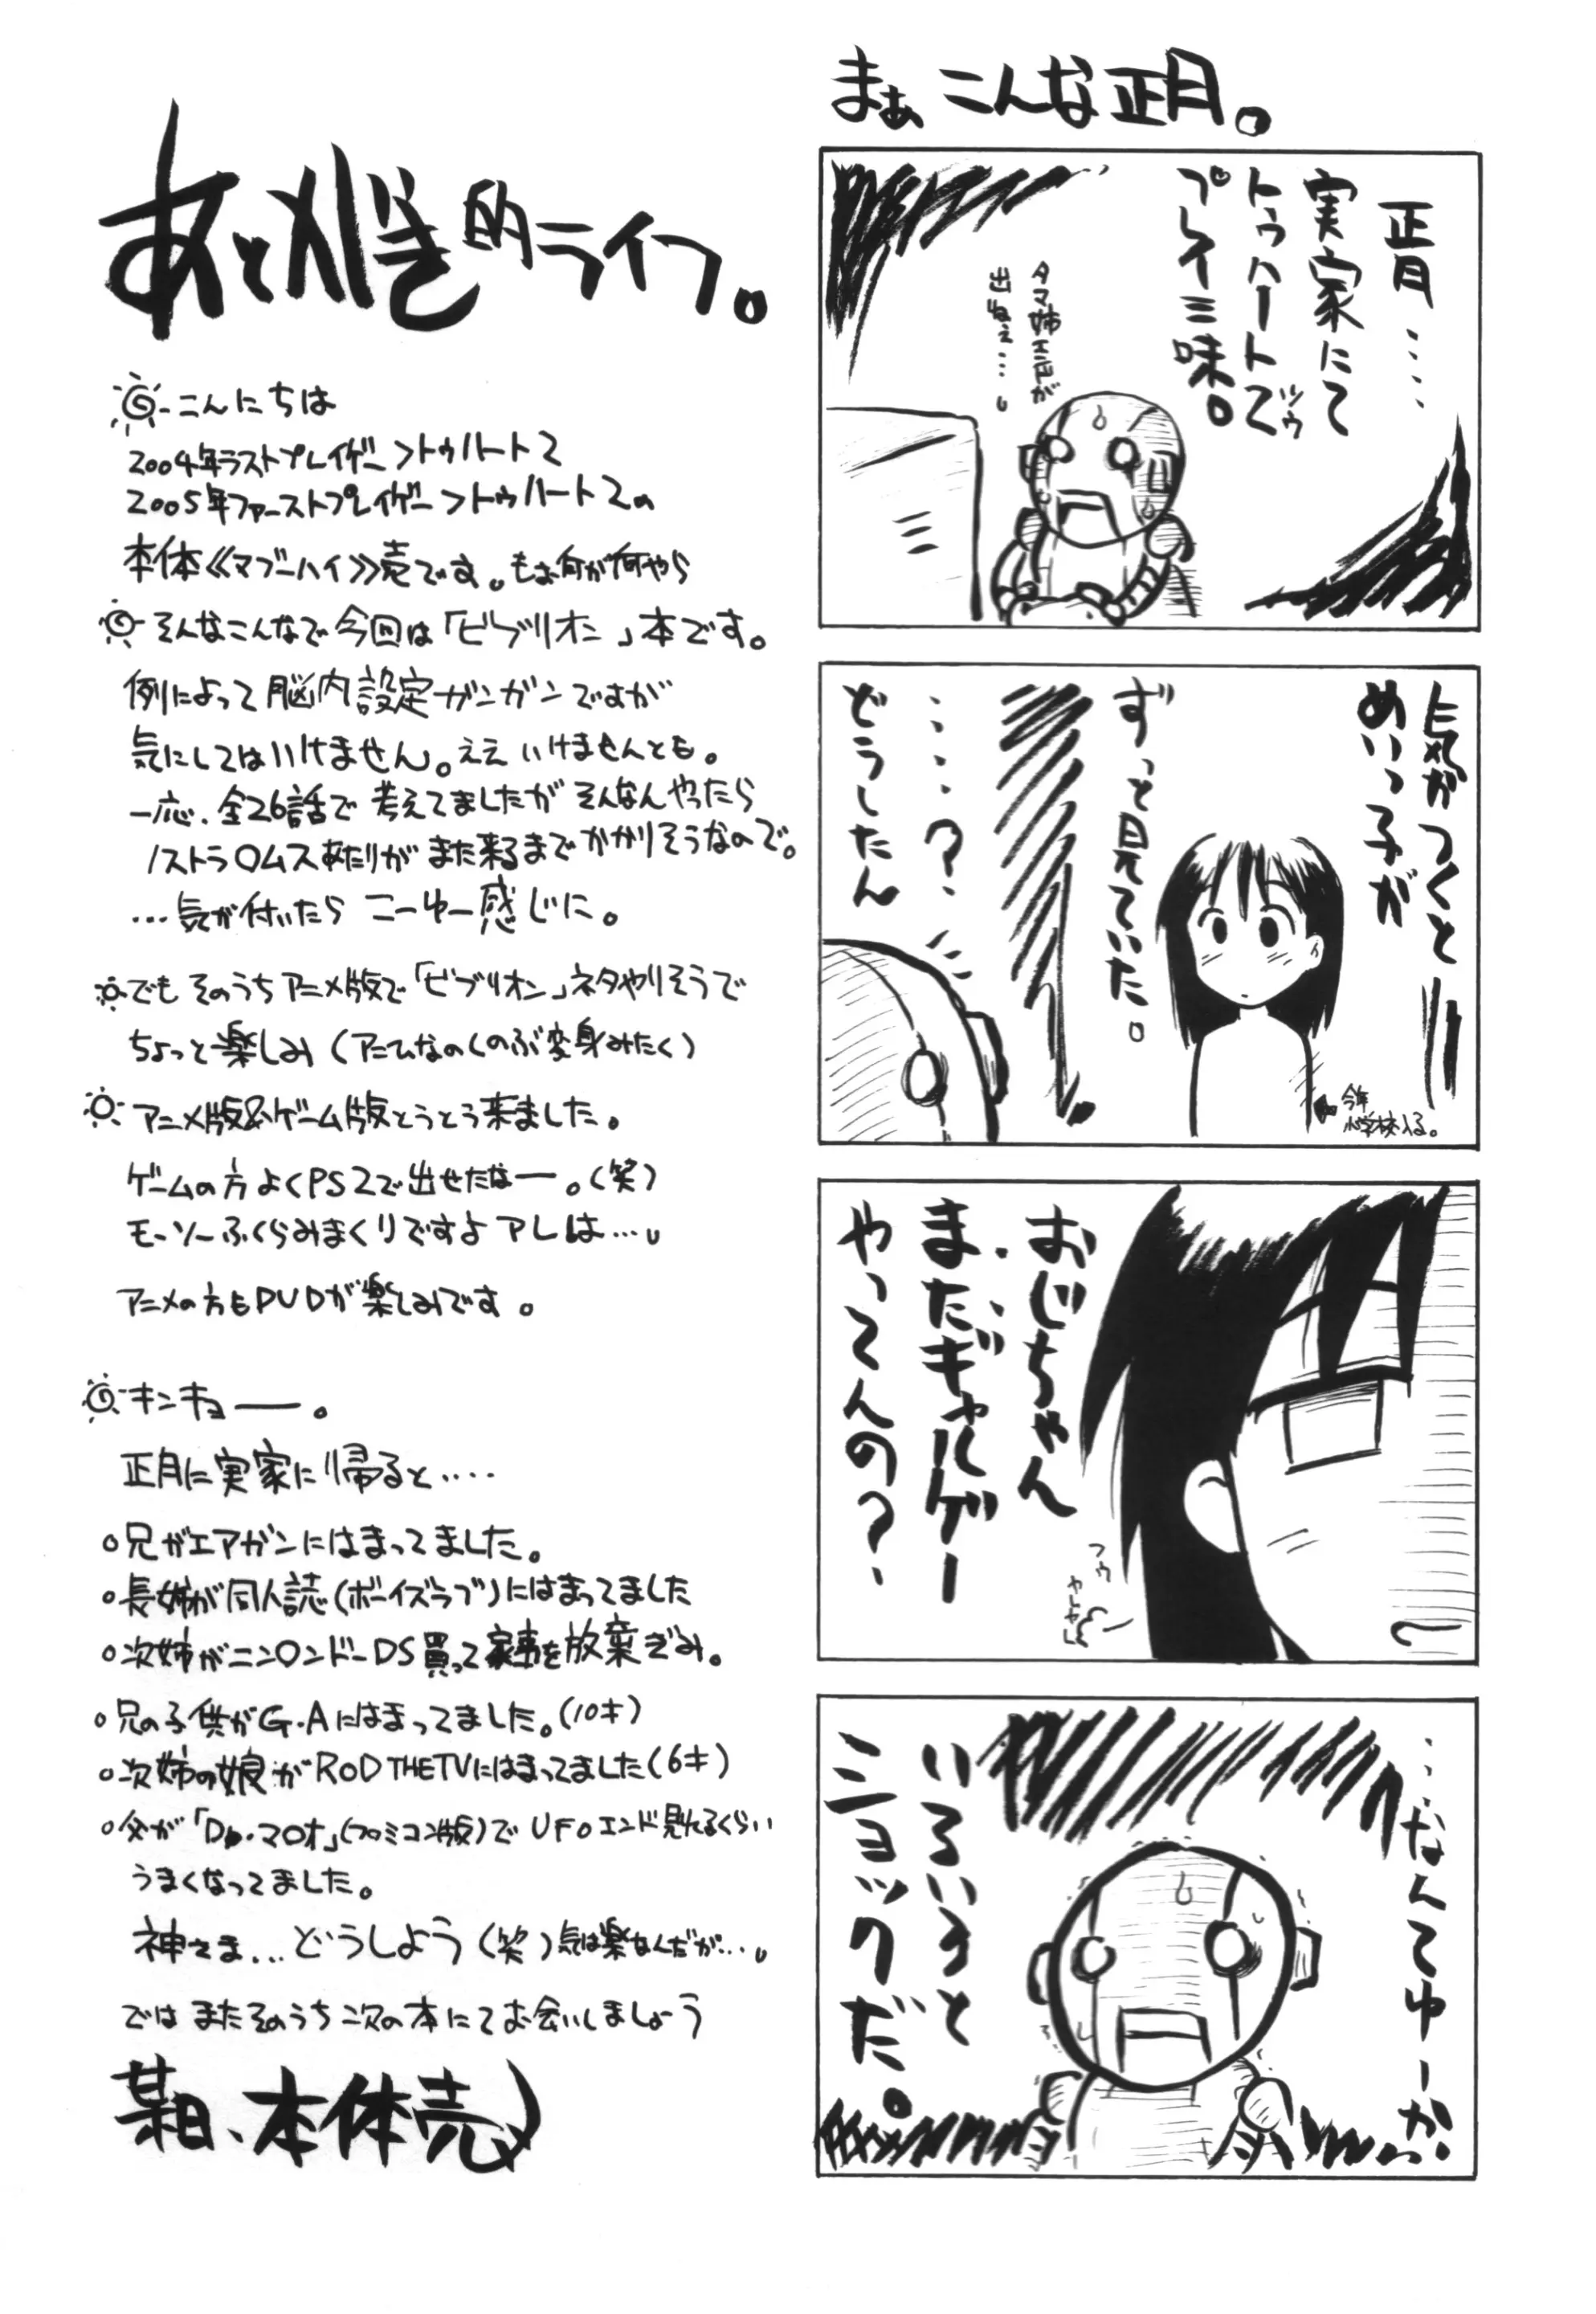 まぁ こんな正月。
正月‥‥‥
実家にて
トゥハート2で
ツゥ
プレイ三昧。
タマ姉エンドが
出ねぇ…。
気がつくと――
めいっ子が
ずっと見ていた。
‥‥‥?
どうしたん
今年
小学校入る。
おじちゃん
‥まだギャルゲー
やってんの?
フゥ
ヤレヤレ
‥‥なんてゆーか
いろいろと
ショックだ。
あとがき的ライフ。
こんにちは
2004年ラストプレイゲー>トゥハート2
2005年ファーストプレイゲー>トゥハート2の
本体≪マブーハイ≫売です。もぉ何が何やら
そんなこんなで今回は「ビブリオン」本です。
例によって脳内設定ガンガンですが
気にしてはいけません。ええ いけませんとも。
一応、全26話で考えてましたが そんなんやったら
ノストラ○ムスあたりがまた来るまでかかりそうなので。
…気が付いたら こーゆー感じに。
でも そのうち アニメ版で「ビブリオン」ネタやりそうで
ちょっと楽しみ(アニひなのしのぶ変身みたく)
アニメ版&ゲーム版とうとう来ました。
ゲームの方よくPS2で出せたなー。(笑)
モーソーふくらみまくりですよ アレは…。
アニメの方もDVDが楽しみです。
キンキョー。
正月に実家に帰ると‥‥
○兄がエアガンにはまってました。
○長姉が同人誌(ボーイズラブ)にはまってました
○次姉がニン○ンドーDS買って家事を放棄ぎみ。
○兄の子供がG・Aにはまってました。(10才)
○次姉の娘がROD THE TVにはまってました(6才)
○父が「Dr.マ○オ」(ファミコン版)でUFOエンド見れるくらい
うまくなってました。
神さま…どうしよう(笑)気は楽なんだが…。
では またそのうち 次の本にてお会いしましょう
某日、本体売